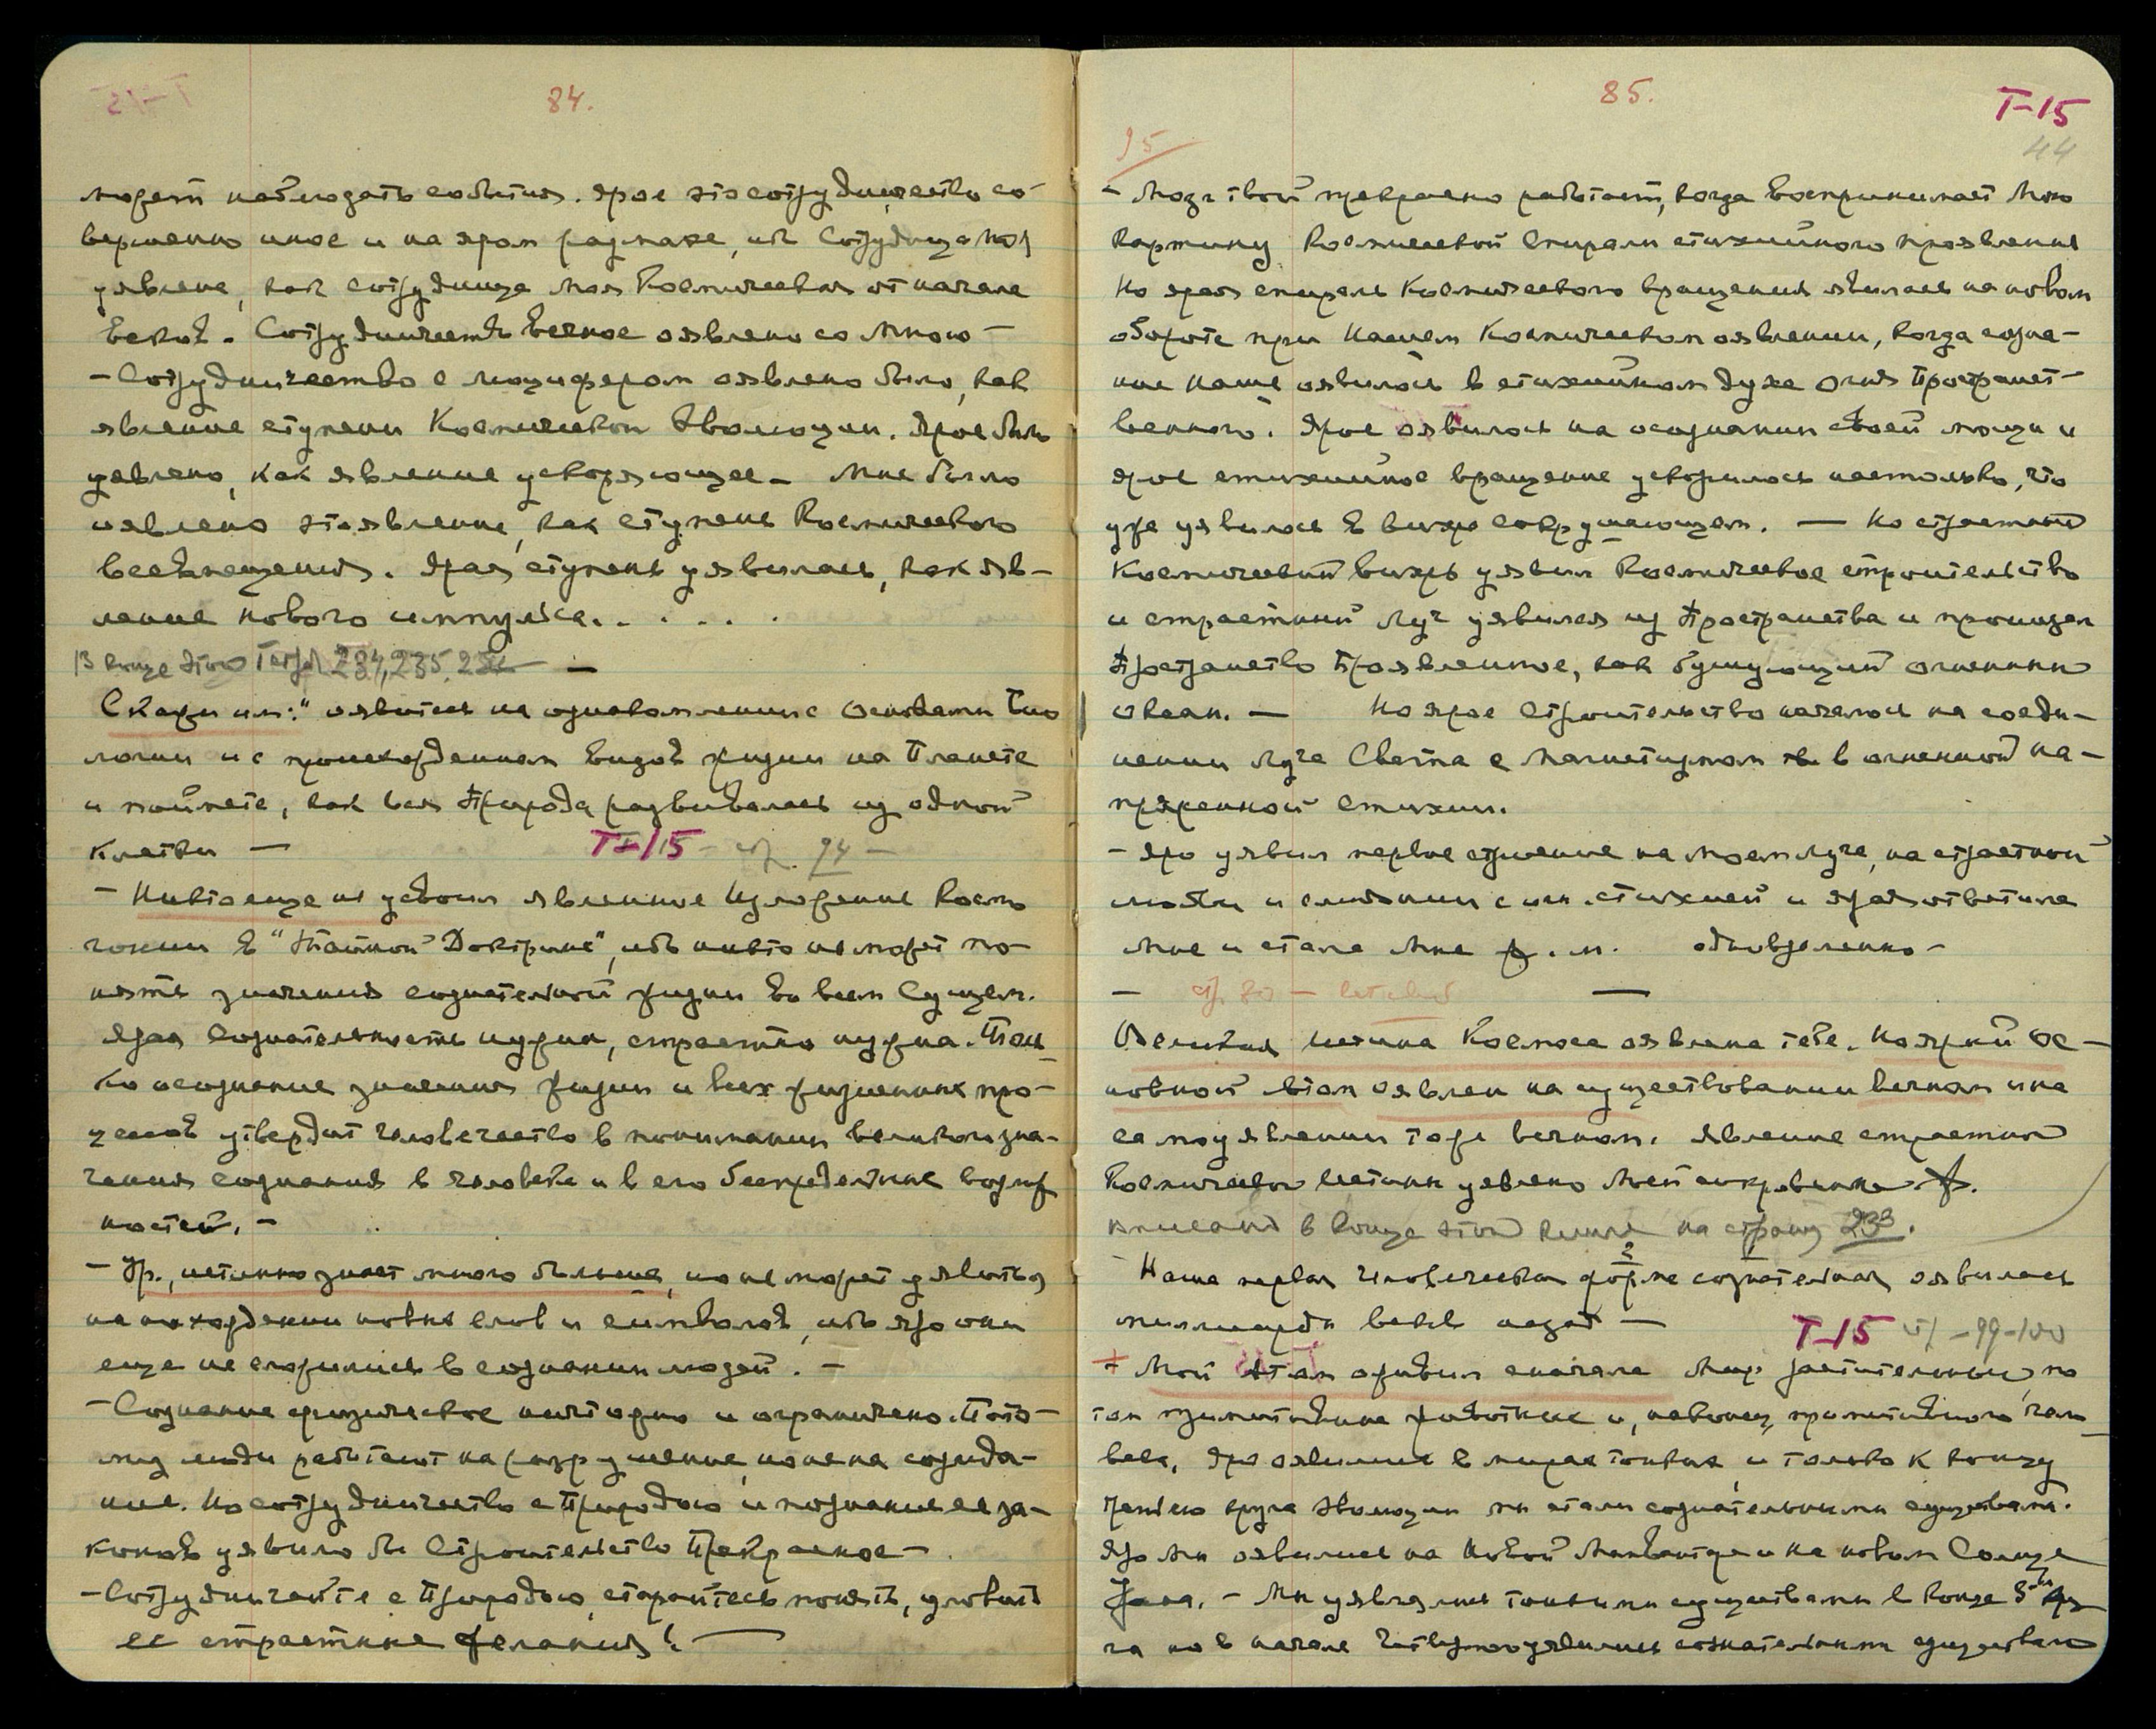 84.
может наблюдать события. Ярое это сотрудничество со-
вершенно иное и на яром размахе, ибо Сотрудница Моя
уявлена, как сотрудница Моя Космическая от начала
веков. Сотрудничество Вечное оявлено со Мною —
— Сотрудничество с Люцифером оявлено было, как
явление ступени Космической Эволюции. Ярое было
уявлено, как явление ускоряющее — Мне было
оявлено это явление, как ступень Космического
восхищения. Ярая ступень уявилась, как яв-
ление нового импульса. . . . . .
В конце этой Тетр. 234, 235, 236 —
Скажи им: "оявитесь на ознакомлении с Основами Био
логии и с происхождением видов жизни на Планете
и поймете, как вся Природа развивалась из одной
клетки —
Т-15 - стр. 94 —
— Никто еще не усвоил явленное Изложение Космо
гонии в "Тайной Доктрине", ибо никто не может по-
нять значения сознательной жизни во всем Сущем.
Ярая Сознательность нужна, страстно нужна. Толь-
ко осознание значения жизни и всех жизненных про-
цессов утвердит человечество в понимании великого зна-
чения сознания в человеке и в его беспредельных возмож
ностей. —
— Ур., истинно знает много больше, но не может уявиться
на нахождении новых слов и символов, ибо яро они
еще не сложились в сознании людей. —
— Сознание физическое ничтожно и ограничено. Пото-
му люди работают на разрушение, но не на созида-
ние. Но сотрудничество с Природою и познание ее за-
конов уявило бы Строительство Прекрасное —
— Сотрудничайте с Природою, старайтесь понять, уловить
ее страстные желания! —
85.
Т-15
44
95
— Мозг твой прекрасно работает, когда воспринимает Мою
картину Космической Спирали стихийного проявления
Но ярая спираль Космического вращения явилась на новом
обороте при Нашем Космическом оявлении, когда созна-
ние Наше оявилось в стихийном духе Огня Пространст-
венного. Ярое оявилось на осознании своей мощи и
ярое стихийное вращение ускорилось настолько, что
уже уявилось в вихре сокрушающем. — Но страстный
Космический вихрь уявил Космическое строительство
и страстный Луч уявился из Пространства и пронизал
Пространство Проявленное, как бушующий огненный
океан. — Но ярое Строительство началось на соеди-
нении Луча Света с Магнетизмом в огненной на-
пряженной стихии.
— Яро уявил первое стремление на моем луче, на страстной
любви и слиянии с стихией и ярая ответила
Мне и стала Мне ж. м. одновременно —
— стр. 80 —
Великая Истина Космоса оявлена тебе. Но яркий Ос-
новной Атом оявлен на существовании вечном и на
самоуявлении тоже вечном. Явление страстной
Космической Истины уявлено Моей сокровенной Ж.
в конце этой книги на страниц 233.
Наша первая Человеческая форма сознательная оявилась
миллиарды веков назад —
Т-15 стр - 99-100
+ Мой Атом оживил сначала Мир растительный, по
том примитивные животные и, наконец, примитивного чело
века. Яро оявились в мирах тонких и только к концу
третьего круга эволюции мы стали сознательными существами.
Яро мы оявились на Новой Манвантаре и на новом Солнце
— Мы уявлялись тонкими существами в конце 3-го кру
га но в начале Четвертого уявились сознательными существами